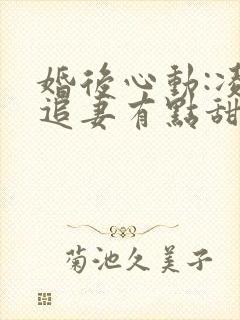 婚後心動:凌
追妻有點甜
菊池久美子